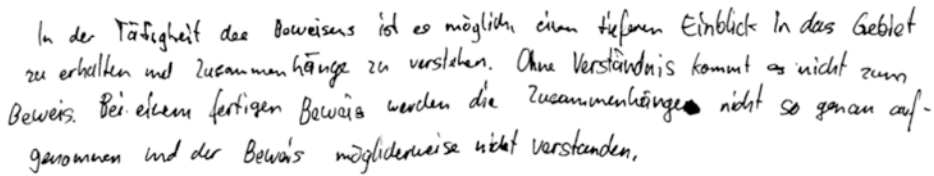 In der Tätigkeit des Beweisens ist es möglich, einen tieferen Einblick in das Gebiet
zu erhalten und Zusammenhänge zu verstehen. Ohne Verständnis kommt es nicht zum
Beweis. Bei einem fertigen Beweis werden die Zusammenhänge nicht so genau auf-
genommen und der Beweis möglicherweise nicht verstanden.